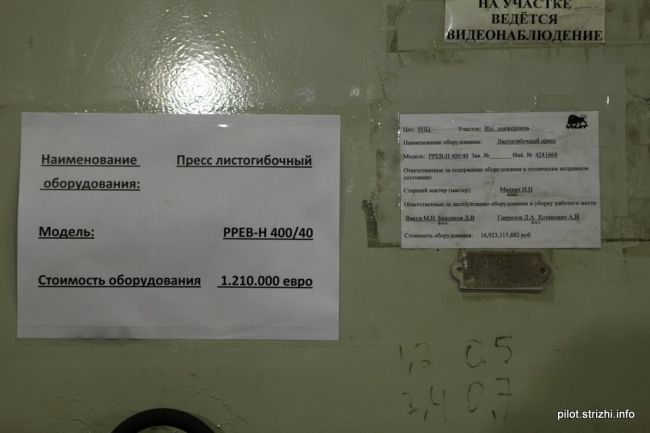 НА УЧАСТКЕ
ВЕДЁТСЯ
ВИДЕОНАБЛЮДЕНИЕ
Наименование Пресс листогибочный
оборудования:
Модель: PPEB-H 400/40
Стоимость оборудования 1.210.000 евро
Цех: РПЦ Участок: Изг. лонжеронов
Наименование оборудования: Листогибочный пресс
Модель: PPEB-H 400/40 Зав. № Инв. № 4241664
Ответственные за содержание оборудования в технически исправном
состоянии:
Старший мастер (мастер) И.Н
Ф.И.О.
Ответственные за эксплуатацию оборудования и уборку рабочего места:
М.Н. Д.В Гаврилов Д.А. Хотянович А.В
Ф.И.О. Ф.И.О.
Стоимость оборудования: 16,923,115,882 руб
1,2 0,5
0,7
pilot.strizhi.info